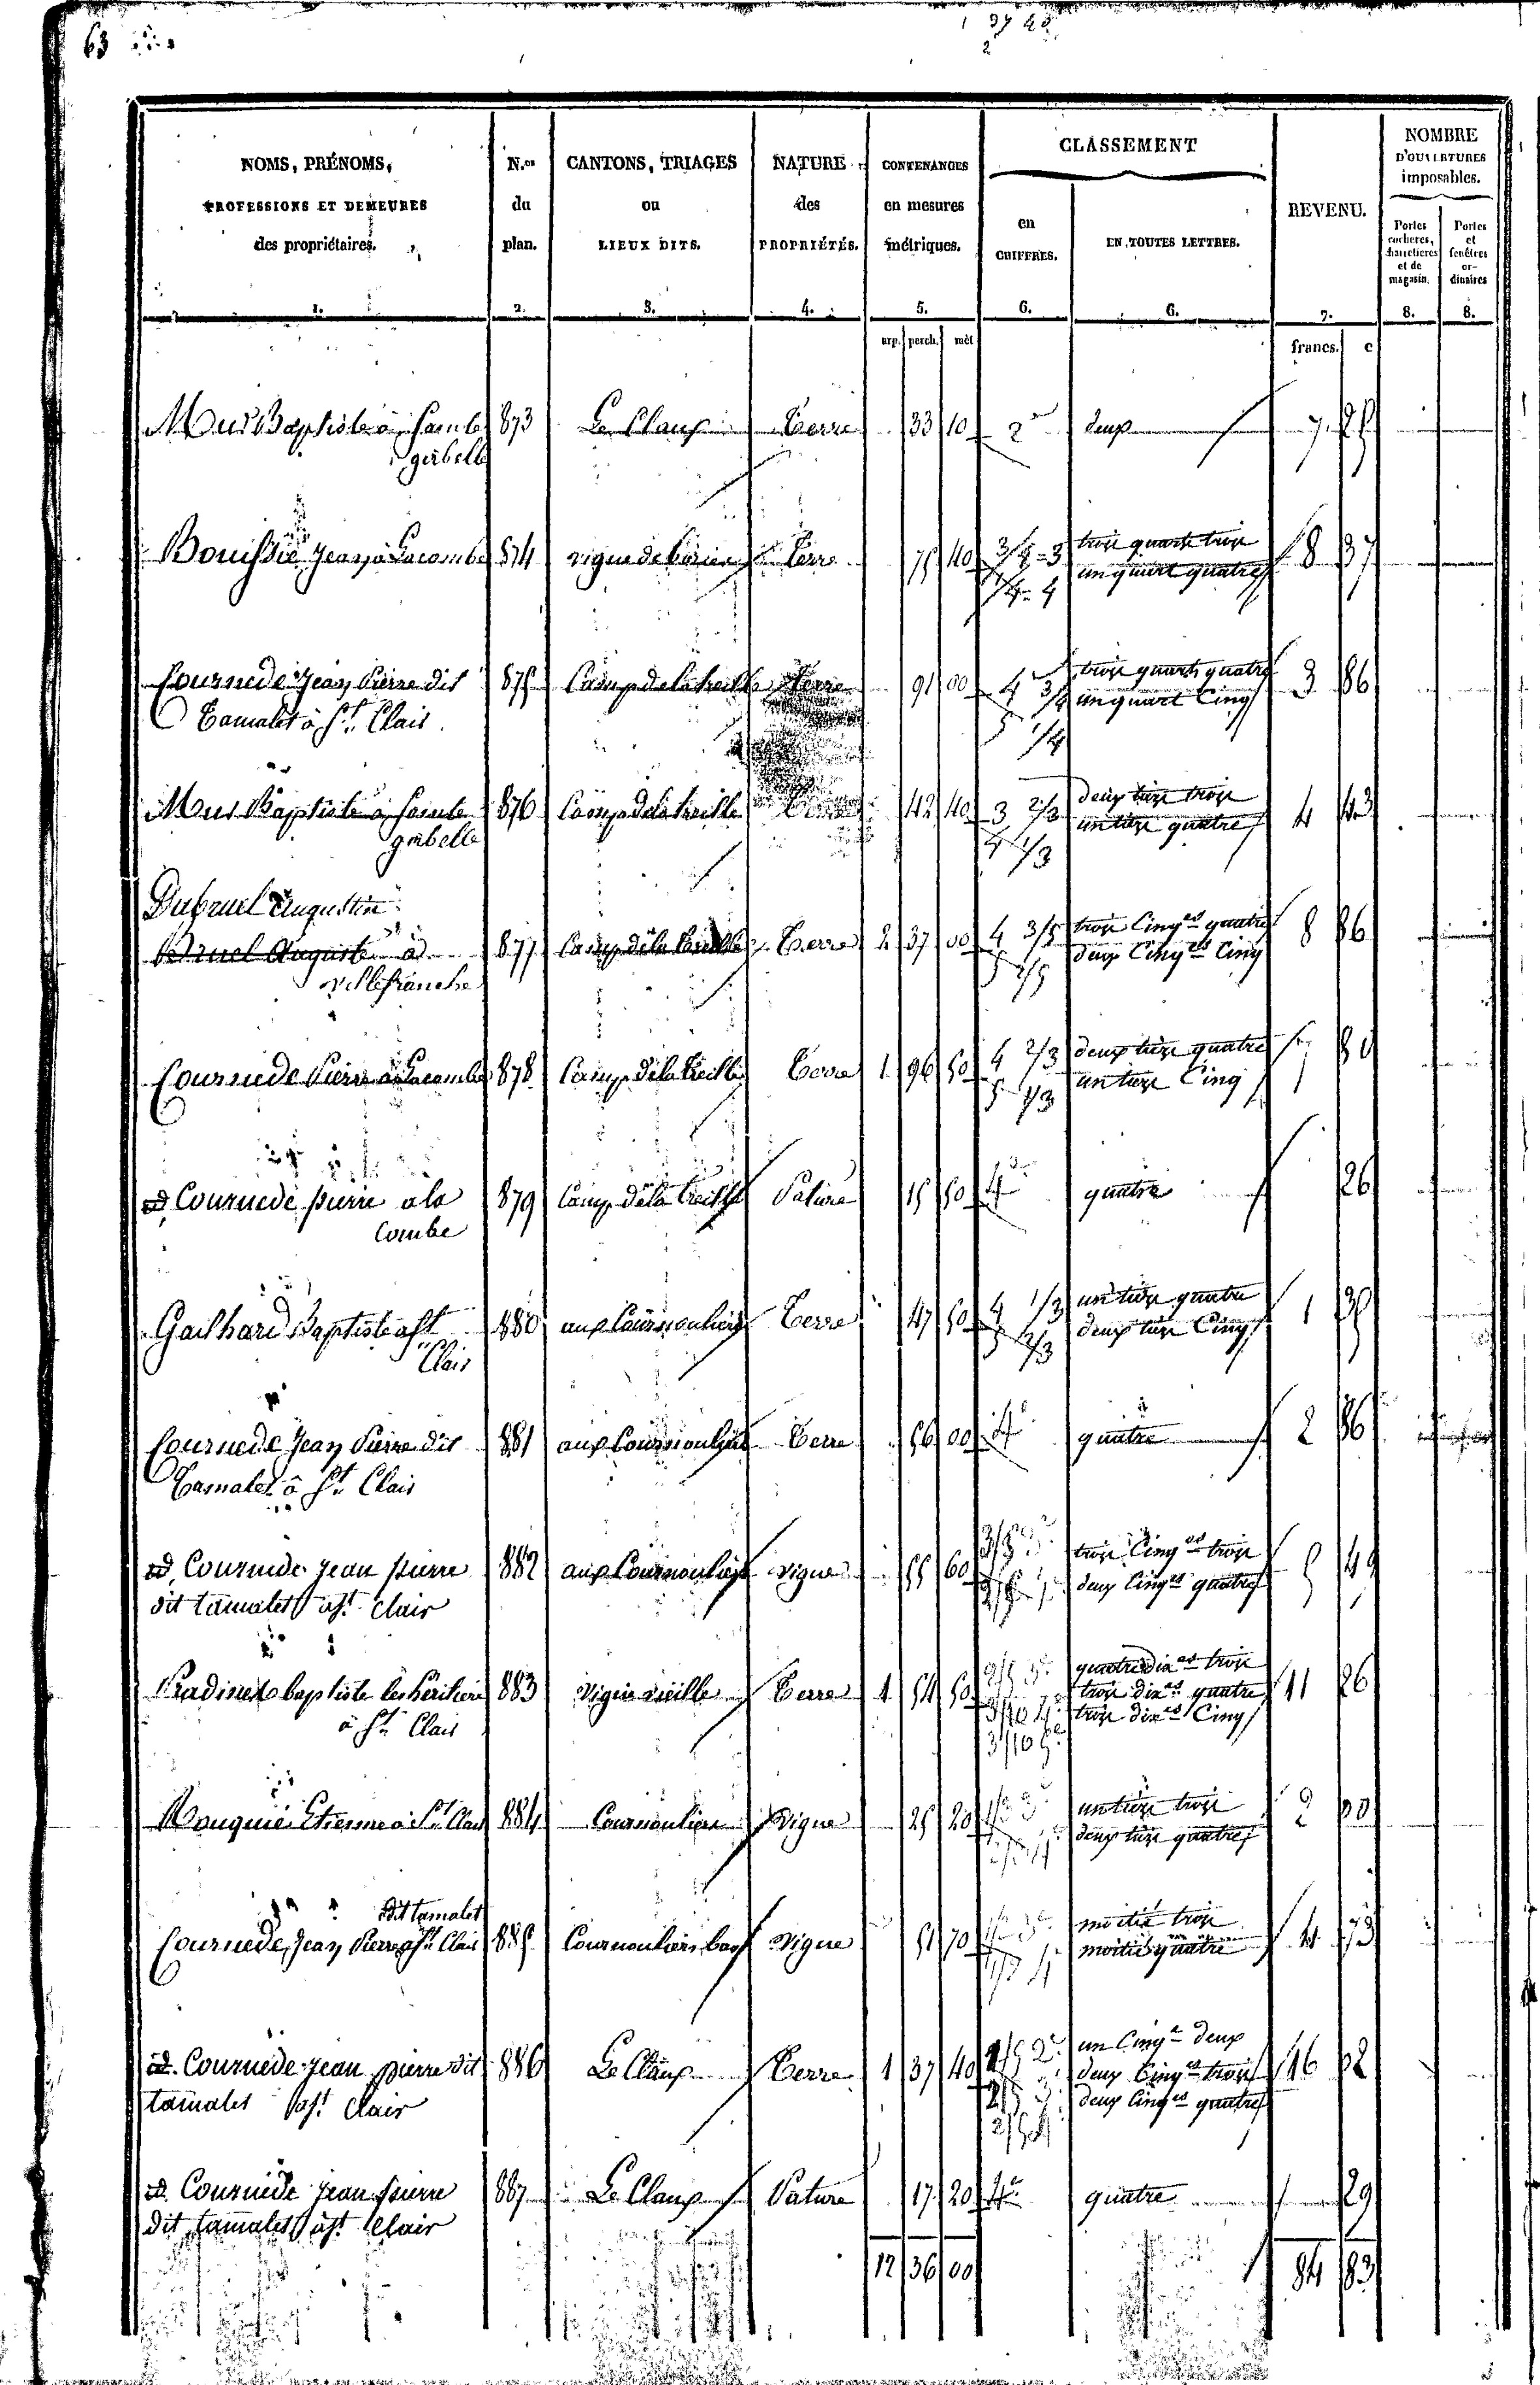 63
1 37 40
2
NOMS, PRÉNOMS, PROFESSIONS ET DEMEURES des propriétaires. 1.
N.os du plan. 2.
CANTONS, TRIAGES ou LIEUX DITS. 3.
NATURE des PROPRIÉTÉS. 4.
CONTENANCES en mesures métriques. 5.
CLASSEMENT
en CHIFFRES. 6.
EN TOUTES LETTRES. 6.
REVENU. 7.
NOMBRE D'OUVERTURES imposables.
Portes cochères, charretières et de magasin. 8.
Portes et fenêtres ordinaires 8.
arp. perch. mèt francs. c
Baptiste à Sainte 873 Le Claux Terre 33 10 2 deux 7
gerbelle
Jean à Lacombe 874 Terre 75 40 3/4 3 trois quarts trois 8 37
1/4 4 un quart quatre
Cournède Jean Pierre dit 875 Camp de la treille Terre 91 00 4 3/4 trois quarts quatre 3 86
Tamalet à St. Clair 5 1/4 un quart Cinq
Baptiste à Sainte 876 Camp de la treille Terre 42 40 3 2/3 deux tiers trois 4 43
gerbelle 4 1/3 un tiers quatre
Dubruel Augustin
Auguste à 877 Camp de la treille Terre 2 37 00 4 3/5 trois Cinqes quatre 8 86
Villefranche 5 2/5 deux Cinqes Cinq
Cournède Pierre à Lacombe 878 Camp de la treille Terre 1 96 50 4 2/3 deux tiers quatre 7
5 1/3 un tiers Cinq
id. Cournède pierre a la 879 Camp de la treille Pature 15 50 4 quatre 26
Combe
Gailhard Baptiste a St 880 aux Cournouliers Terre 47 50 4 1/3 un tiers quatre 1
Clair 5 2/3 deux tiers Cinq
Cournède Jean Pierre dit 881 aux Cournouliers Terre 56 00 4 quatre 2 86
Tamalet à St. Clair
id. Cournède jean pierre 882 aux Cournouliers vigne 55 60 3/5 3 trois Cinqes trois 5 49
dit tamalet a St. Clair 2/5 deux Cinqes quatre
baptiste les héritiers 883 Vigne vieille Terre 1 54 50 quatre dixes trois 11 26
à St. Clair 3/10 4 trois dixes quatre
3/10 5e trois dixes Cinq
Etienne à St. Clair 884 Cournouliers Vigne 25 20 un tiers trois 2
deux tiers quatre
dit tamalet
Cournède Jean Pierre à St. Clair 885 Cournouliers bas Vigne 51 70 moitié trois 4 73
moitié quatre
id. Cournède jean pierre dit 886 Le Claux Terre 1 37 40 1/5 2 un Cinqe deux 16 82
tamalet a St. Clair 2/5 deux Cinqes trois
2/5 4 deux Cinqes quatre
id. Cournède jean pierre 887 Le Claux Pature 17 20 4 quatre 29
dit tamalet a St. Clair
12 36 00 84 83